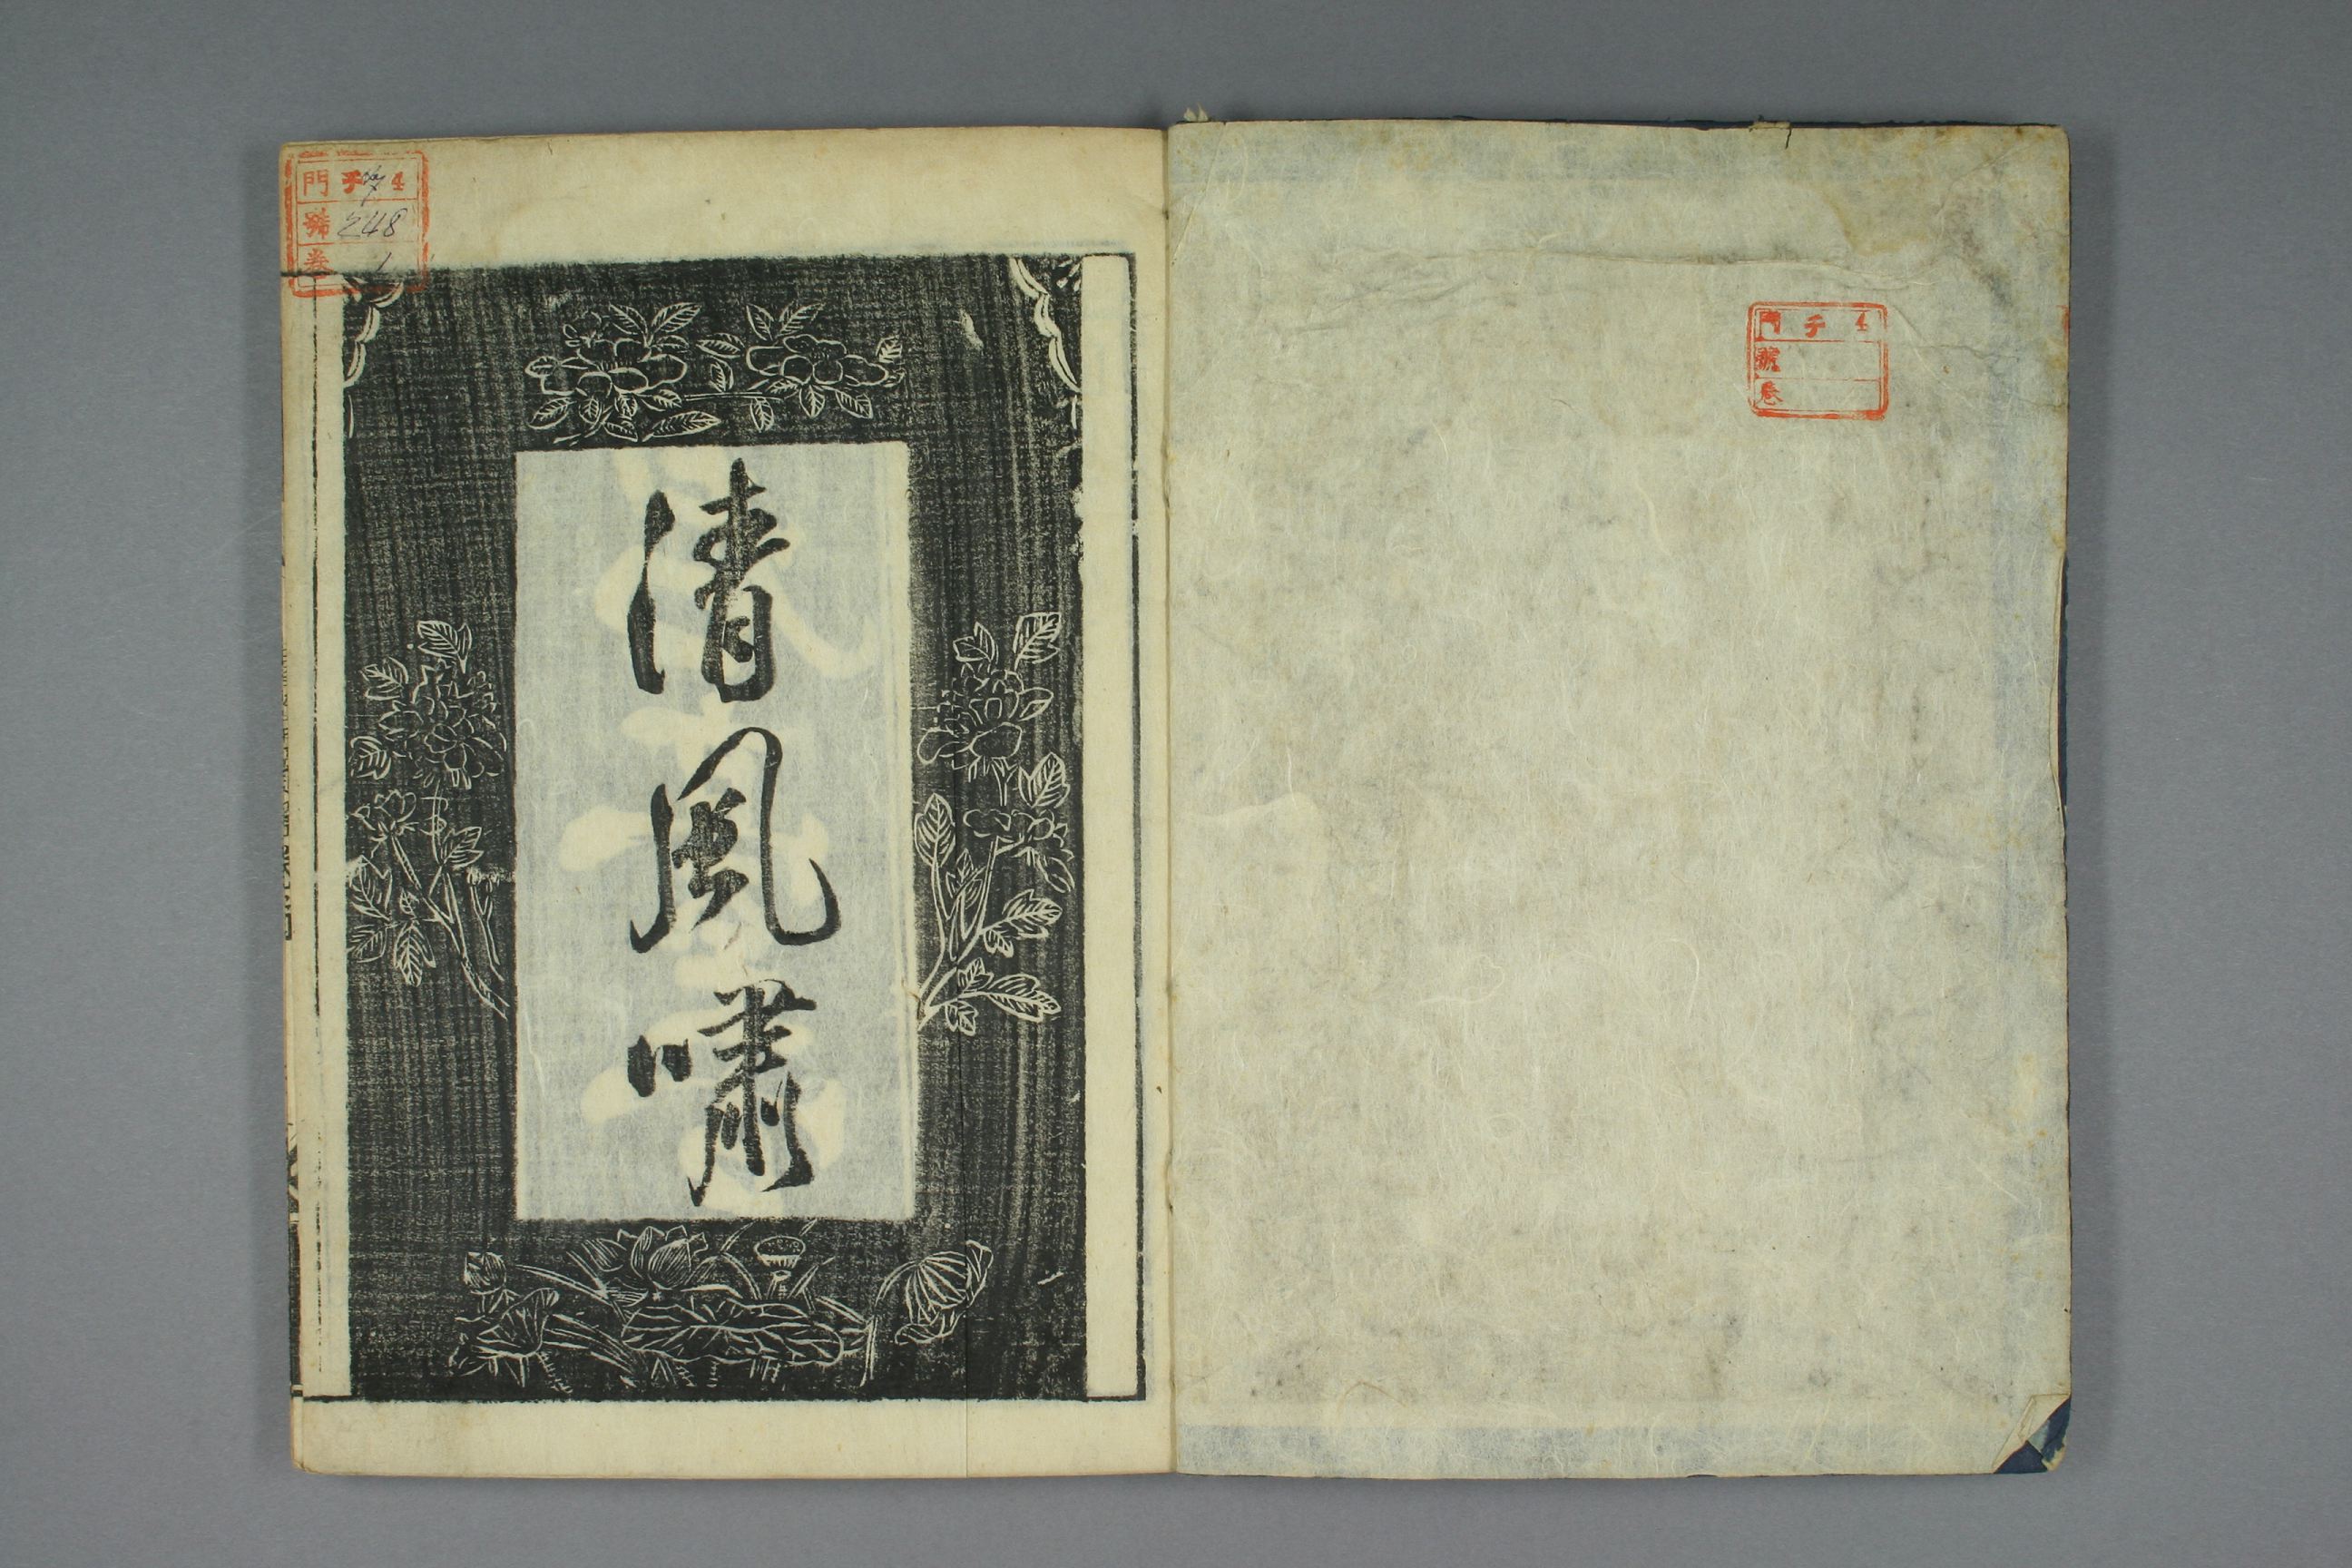 門 チ 4
號
卷
清風嘯
門 チ 4
號 248
卷 1